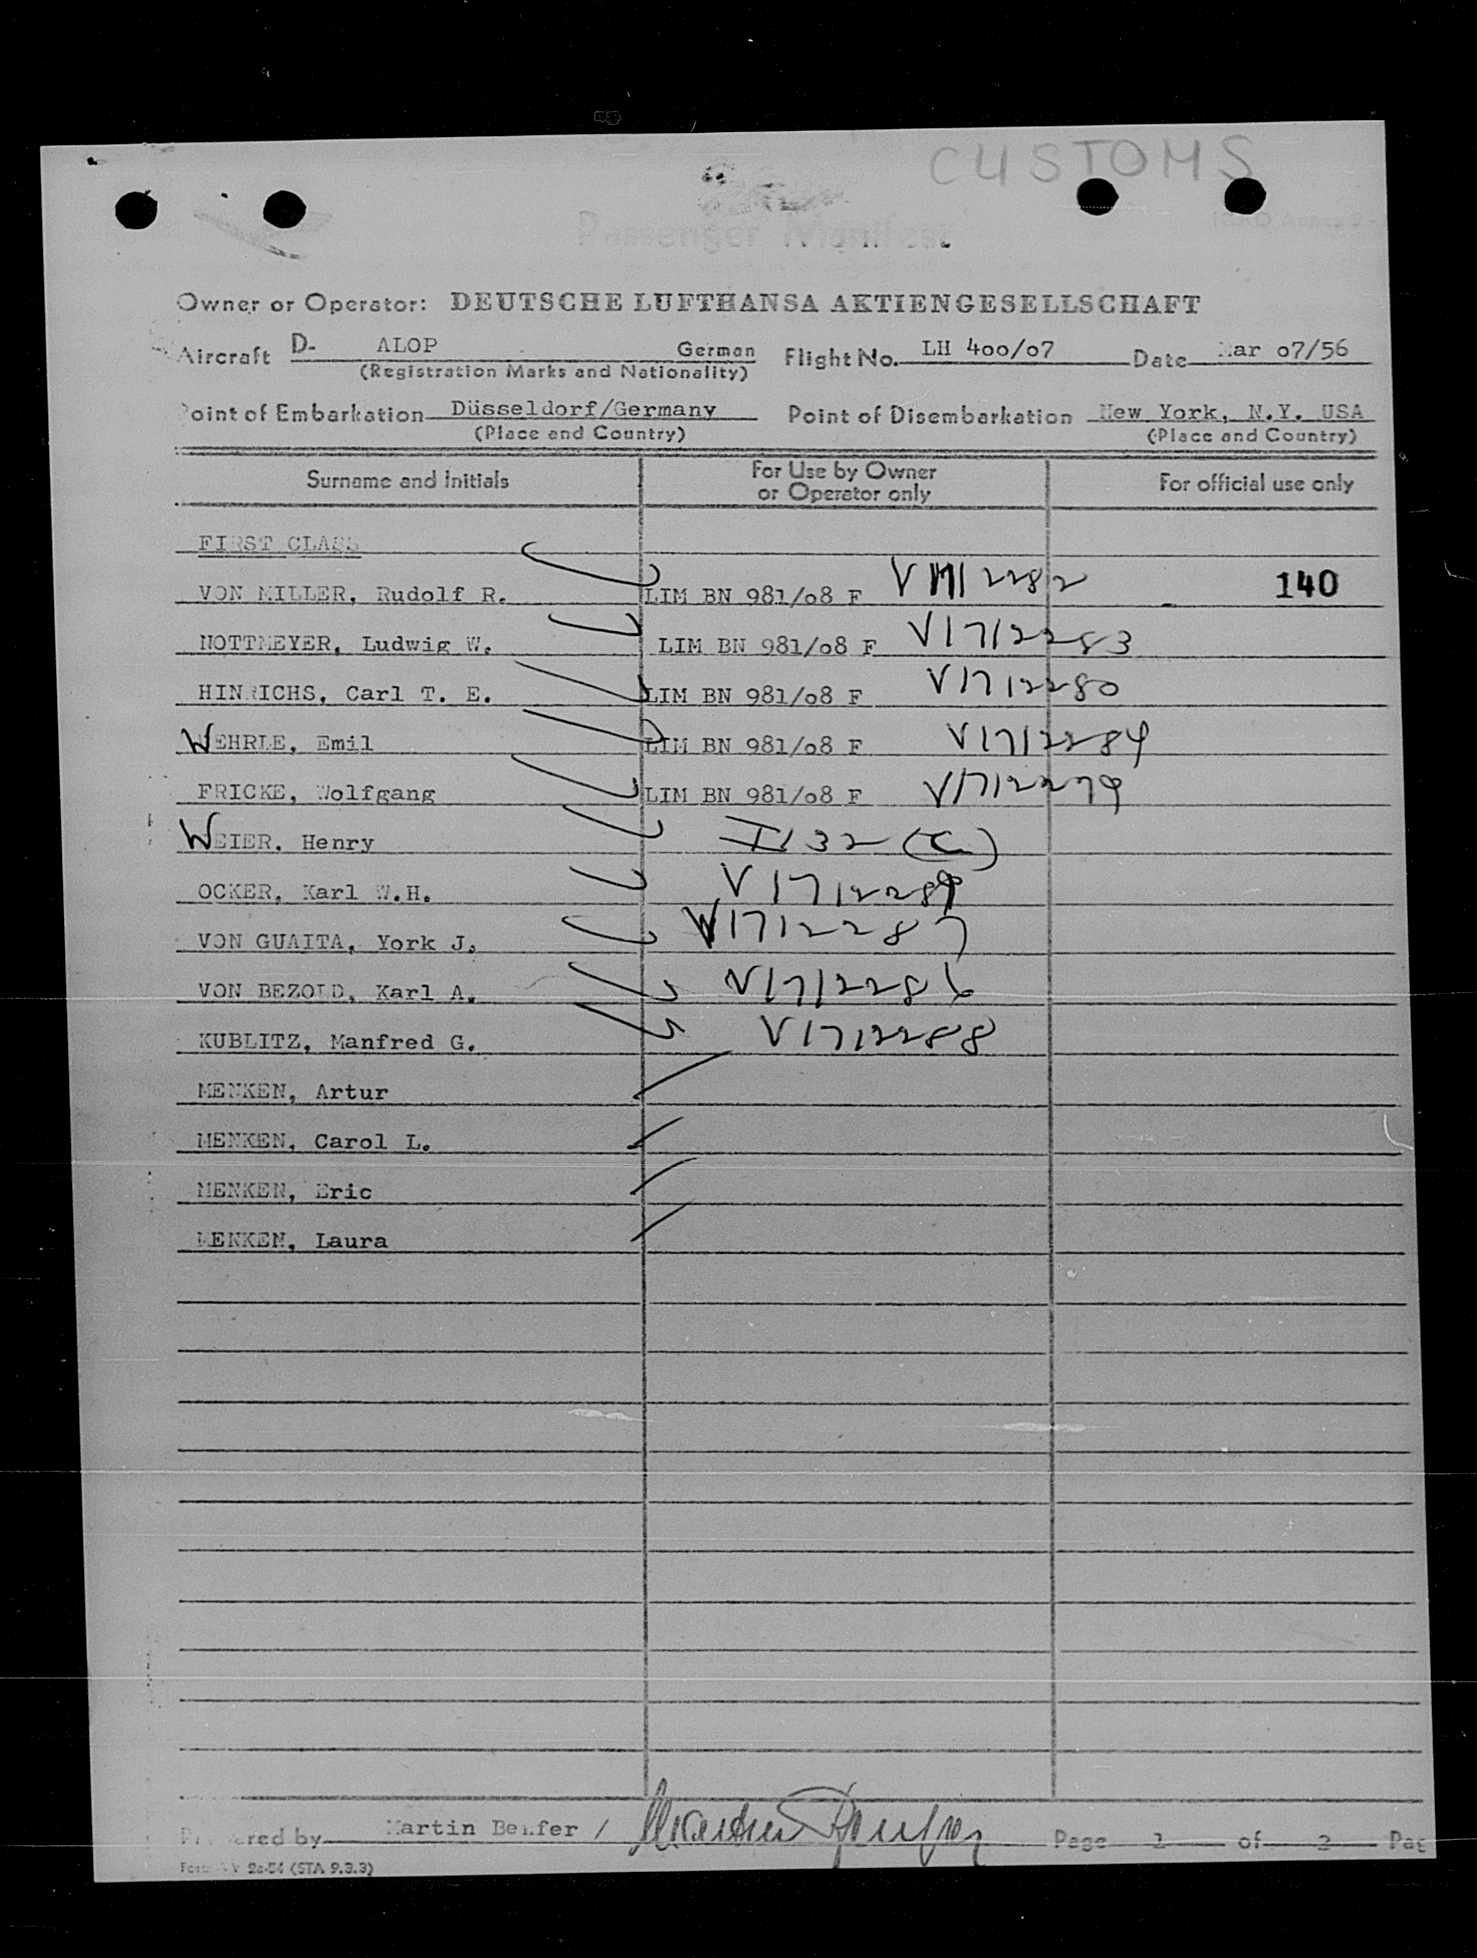 CUSTOMS
Passenger Manifest
ICAO Annex 9 -
Owner or Operator: DEUTSCHE LUFTHANSA AKTIENGESELLSCHAFT
Aircraft D- ALOP German Flight No. LH 400/07 Date Mar 07/56
(Registration Marks and Nationality)
Point of Embarkation Düsseldorf/Germany Point of Disembarkation New York, N.Y. USA
(Place and Country) (Place and Country)
Surname and Initials For Use by Owner or Operator only For official use only
FIRST CLASS
VON MILLER, Rudolf R. LIM BN 981/08 F V1712282 140
NOTTMEYER, Ludwig W. LIM BN 981/08 F V1712283
HINRICHS, Carl T. E. LIM BN 981/08 F V1712280
WEHRLE, Emil LIM BN 981/08 F V1712284
FRICKE, Wolfgang LIM BN 981/08 F V1712279
WEIER, Henry I132 (C)
OCKER, Karl W.H. V1712289
VON GUAITA, York J. V1712287
VON BEZOLD, Karl A. V1712286
KUBLITZ, Manfred G. V1712288
MENKEN, Artur
MENKEN, Carol L.
MENKEN, Eric
MENKEN, Laura
Prepared by Martin Benfer / Page 1 of 2 Pag
2a-54 (STA 9.3.3)